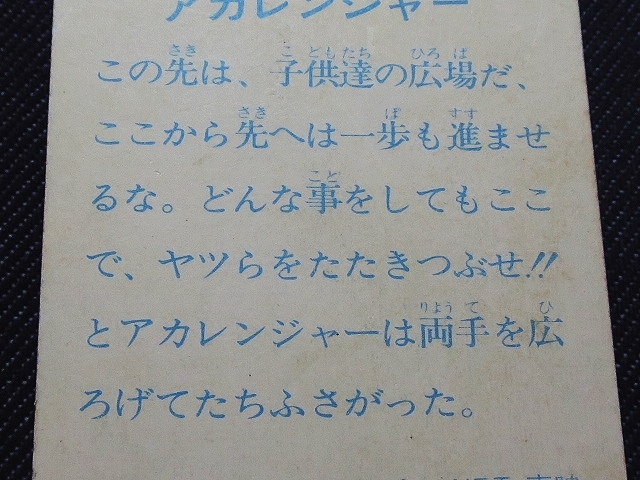 アカレンジャー
この先は、子供達の広場だ、
ここから先へは一歩も進ませ
るな。どんな事をしてもここ
で、ヤツらをたたきつぶせ!!
とアカレンジャーは両手を広
ろげてたちふさがった。